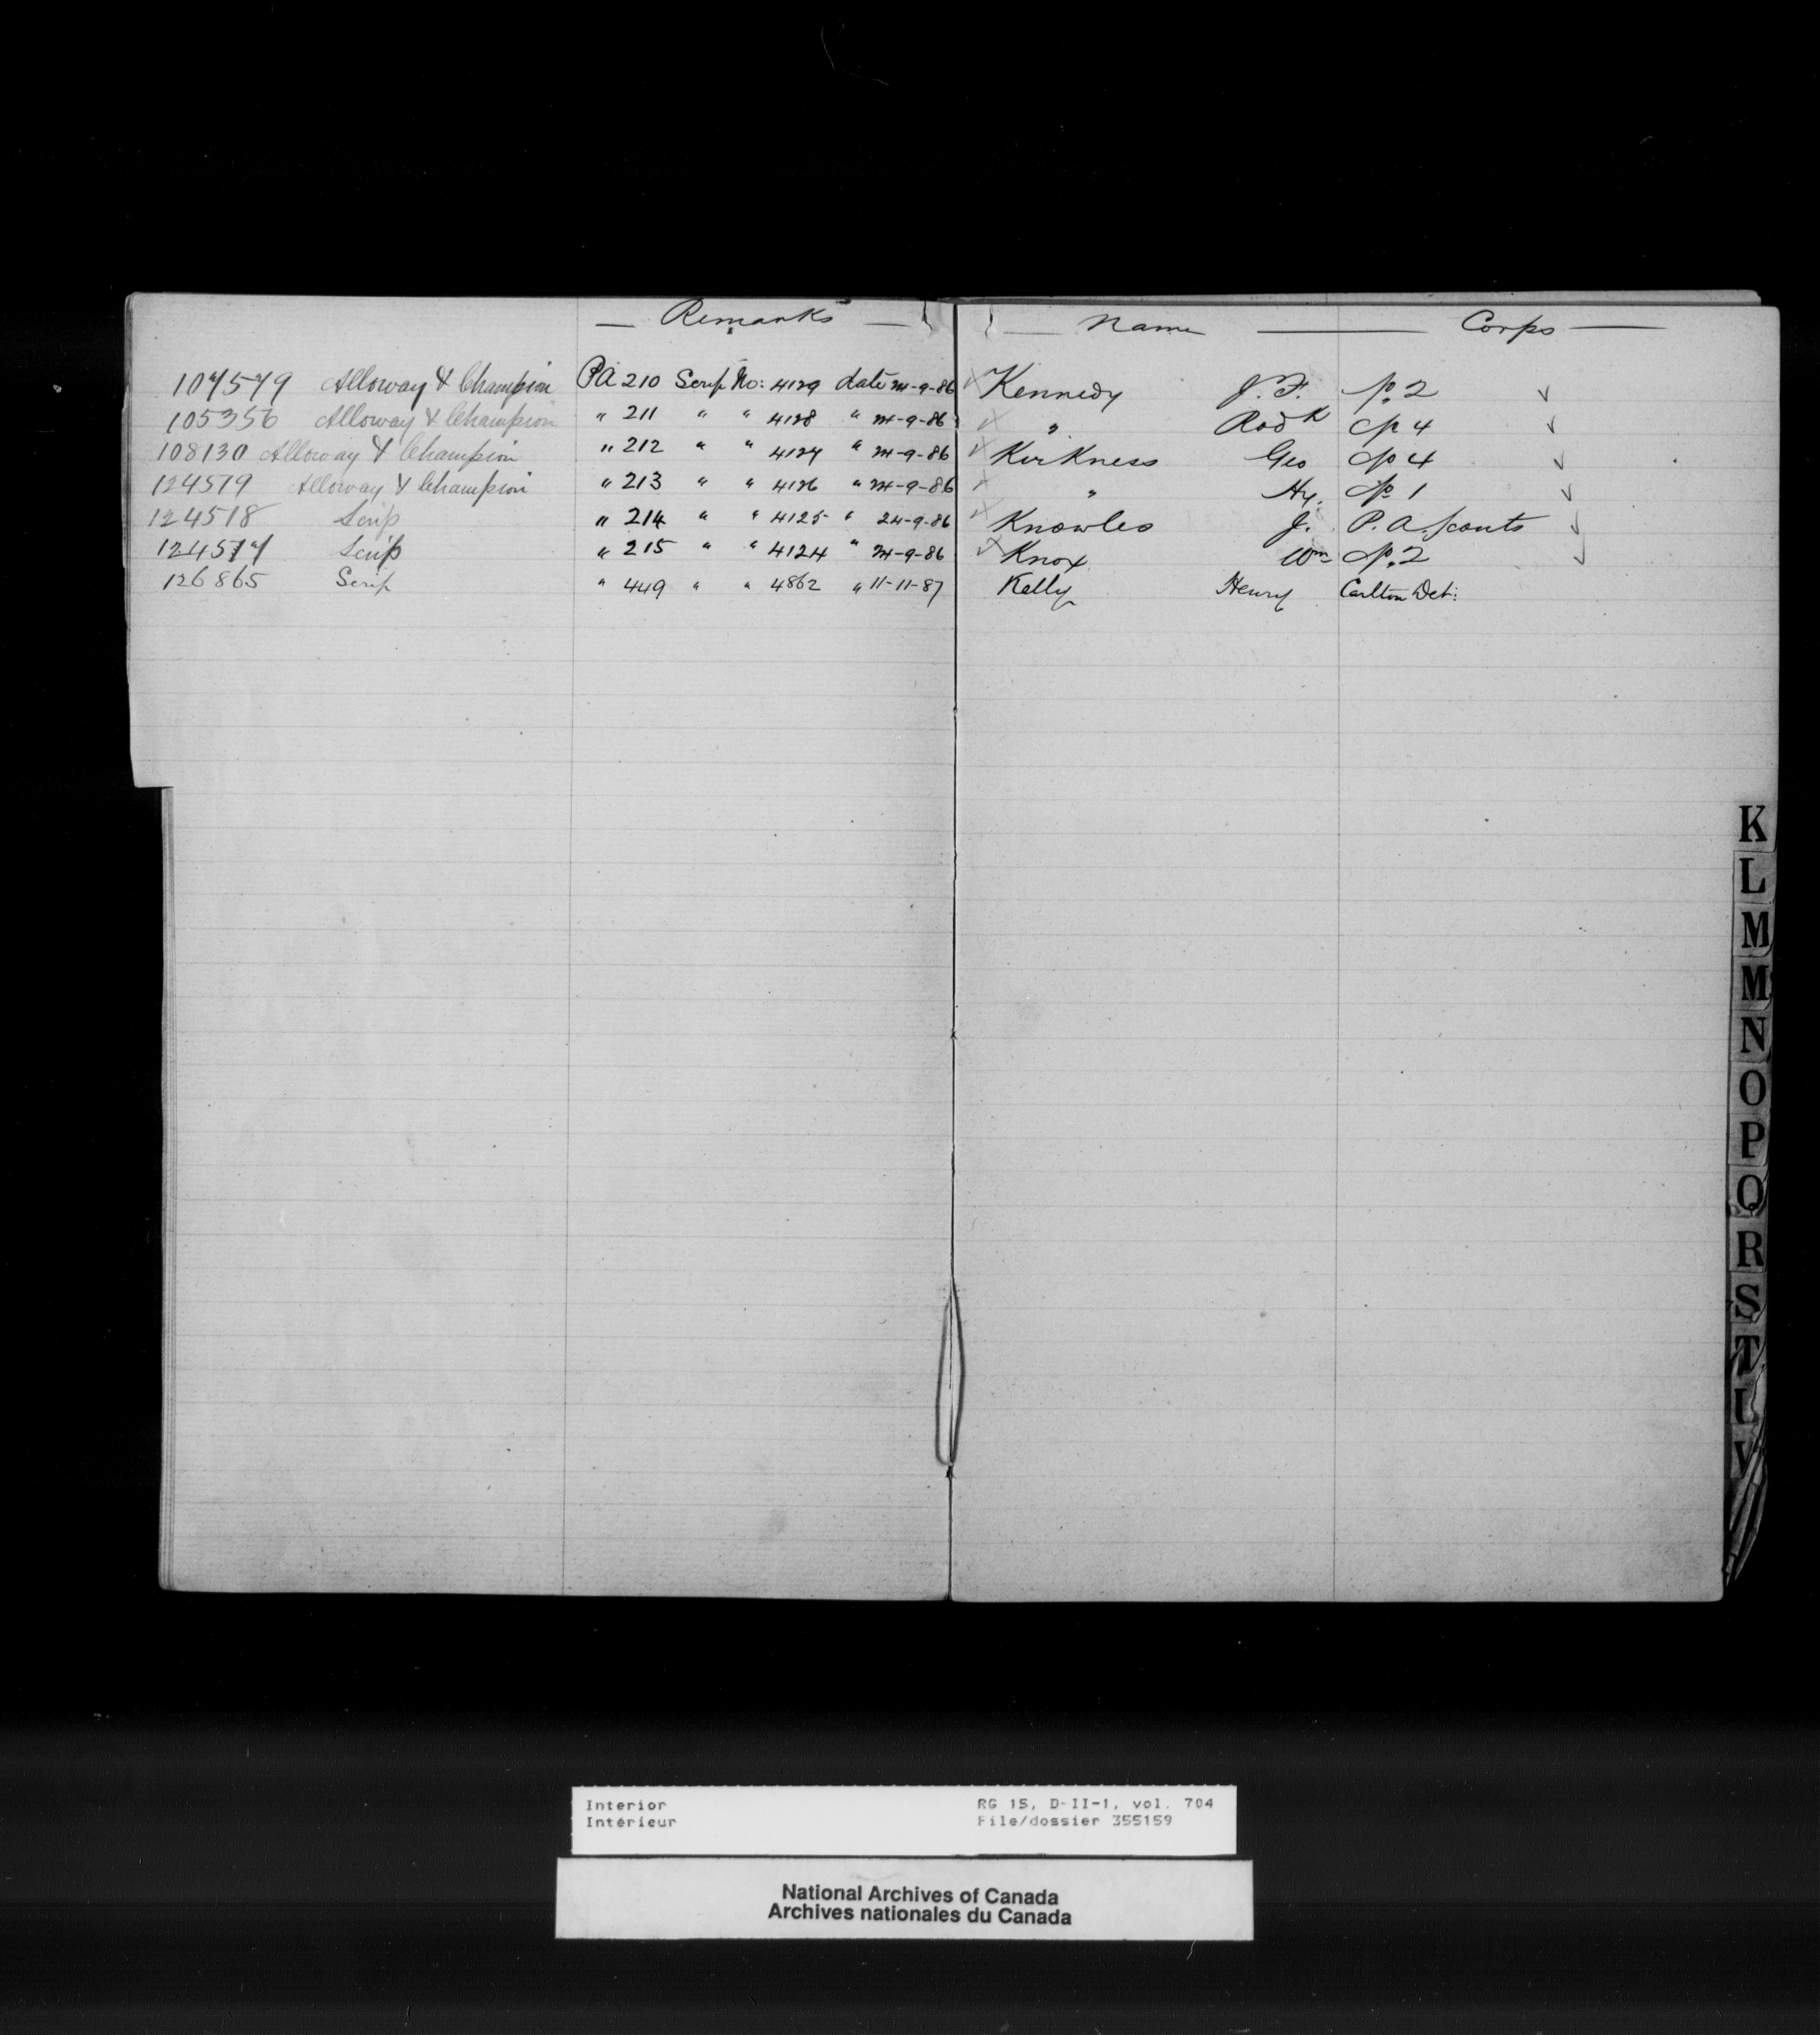 Remarks
107579 Alloway & Champion PA 210 Scrip No: 4129 date 24-9-86
105356 Alloway & Champion " 211 " " 4128 " 24-9-86
108130 Alloway & Champion " 212 " " 4127 " 24-9-86
124519 Alloway & Champion " 213 " " 4126 " 24-9-86
124518 Scrip " 214 " " 4125 " 24-9-86
124517 Scrip " 215 " " 4124 " 24-9-86
126865 Scrip " 449 " " 4862 " 11-11-87
Name Corps
Kennedy J. F. No. 2
" Rodk No 4
Kirkness Geo No 4
" Hy. No 1
Knowles J. P. A. Scouts
Knox Wm No. 2
Kelly Henry Carlton Det:
K
L
M
M
N
O
P
Q
R
S
T
V
Interior RG 15, D-II-1, vol. 704
Intérieur File/dossier 355159
National Archives of Canada
Archives nationales du Canada